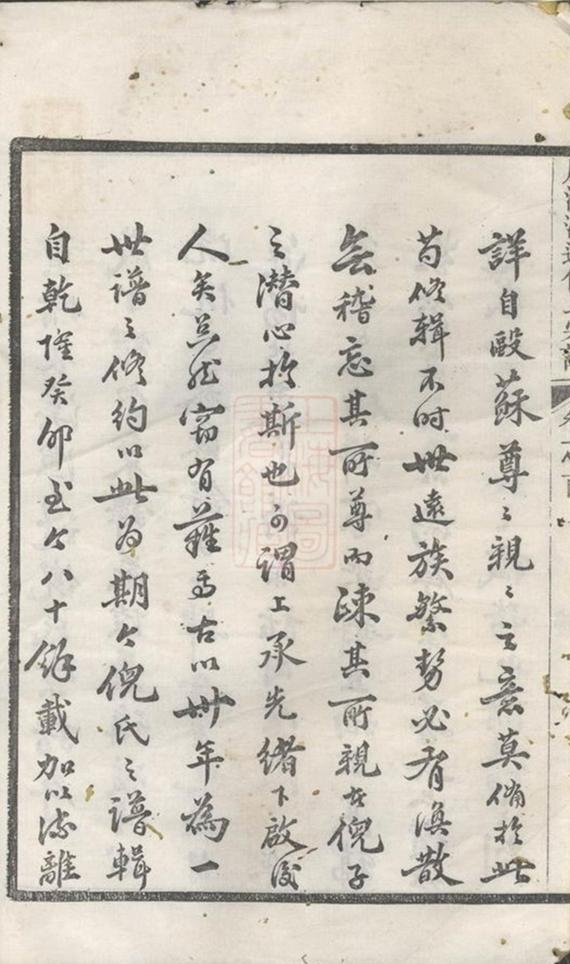 詳自歐蘇尊〻親〻之意莫備於此
苟修輯不時世遠族繁勢必有渙散
無稽忘其所尊而疎其所親者倪子
之潛心於斯也可謂上承先緒下啟後
人矣然竊有難焉古以卅年為一
世譜之修約以此為期今倪氏之譜輯
自乾隆癸卯至今八十餘載加以流離